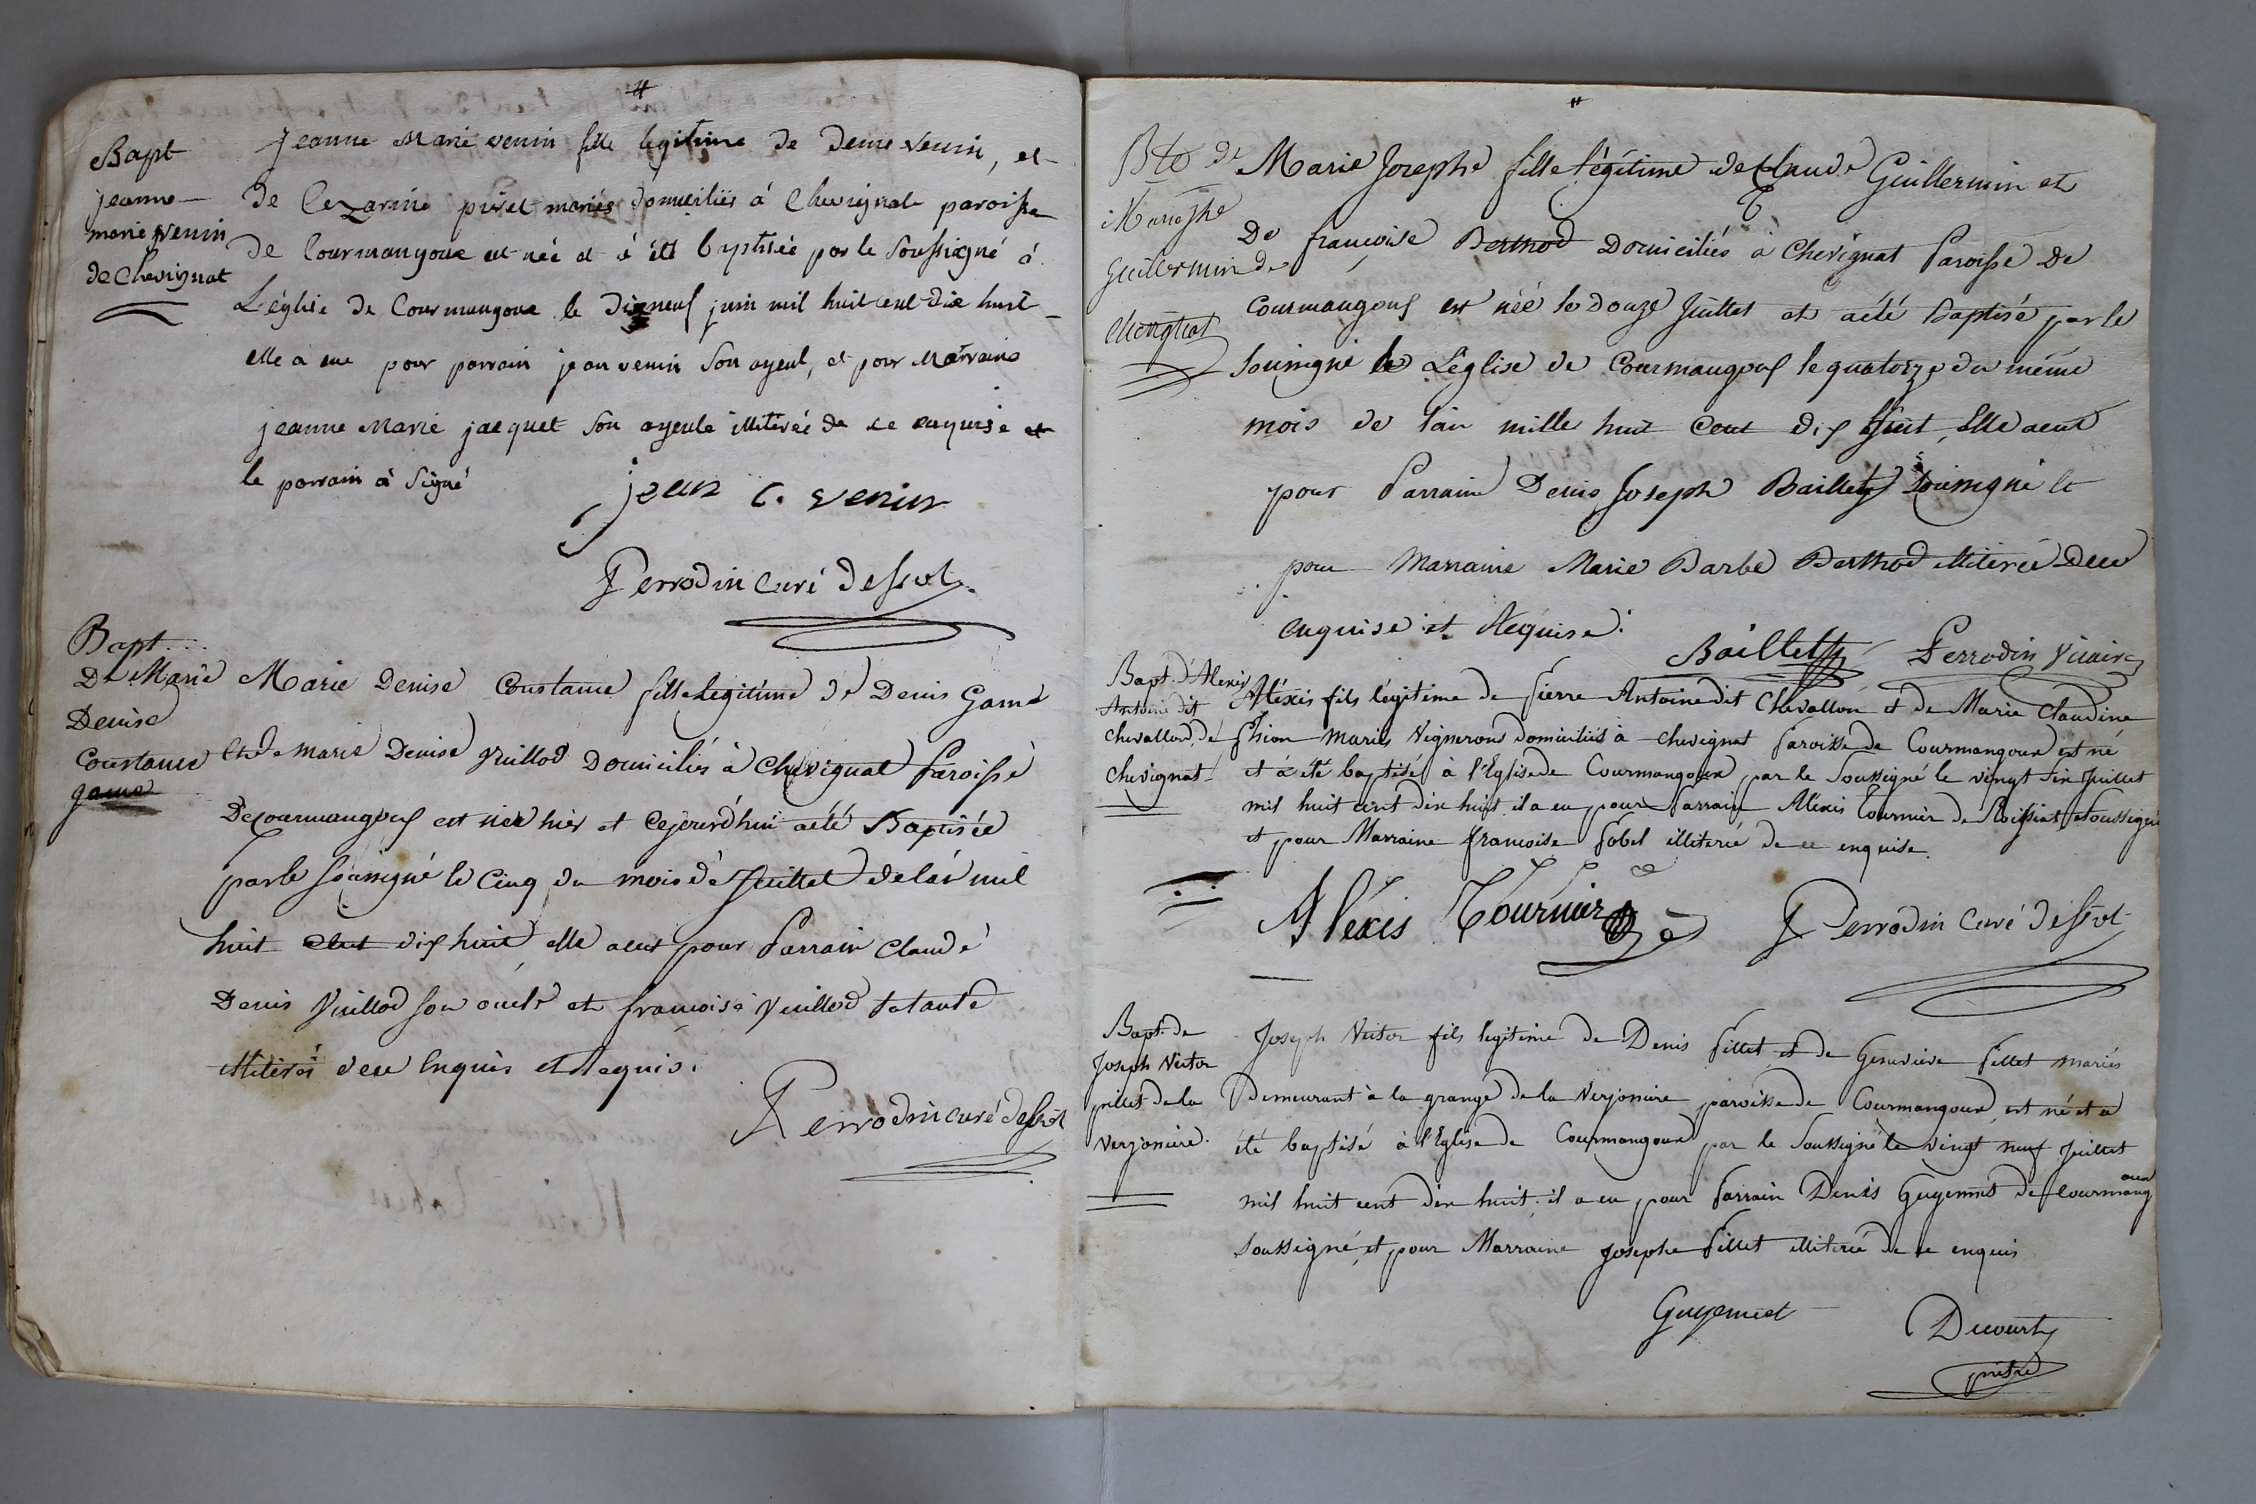 Bapt
jeanne
marie venin
de Chevignat
Jeanne Marie venin fille legitime de denis venin, et
de Cezarine piret mariés domiciliés á Chevignat paroisse
de Courmangoux est née et á été baptisée par le Soussigné á
L'église de Courmangoux le dixneuf juin mil huit cent dix huit
elle a eue pour parrain jean venin Son ayeul, et pour Marraine
jeanne Marie jacquet Son ayeule illiterée de ce enquise et
le parrain à Signé
jean C. venin
Perrodin Curé
Bapt...
De Marie
Denise
Constance
gama
Marie Denise Constance fille legitime de Denis Gama
Et de Marie Denise Vuillod Domiciliés à Chevignat Paroisse
De courmangoux est née hier et cejourd'hui aété Baptisée
par le Soussigné le Cinq du mois de Juillet de l'an mil
huit cent dix huit elle aeut pour Parrain Claude
Denis Vuillod son oncle et francoise Vuillod sa tante
illiterés dece Enquis et Requis.
Perrodin curé
Bte de
Guillermin de
Chevignat
Marie Josephe fille légitime de Claude Guillermin et
De francoise Berthod Domiciliés à Chevignat Paroisse De
Courmangoux est née le Douze Juillet et aété Baptisé par le
Soussigné L'eglise de Courmangoux le quatorze du même
mois de l'an mille huit Cent Dix huit, Elle aeut
pour Parrain Denis Joseph Baillet Soussigné Et
pour Marraine Marie Barbe Berthod illiterée Dece
enquise et Requise.
Baillet Perrodin Vicaire
Bapt. d'Alexis
Antoine dit
Chevallon, de
Chevignat
Aléxis fils légitime de Pierre Antoine dit Chevallon et de Marie Claudine
Pion Mariés Vignerons domiciliés à chevignat Paroisse de Courmangoux est né
et á été baptisé à l'Eglise de Courmangoux par le Soussigné le vingt Six Juillet
mil huit cent dix huit il a eu pour Parrain Aléxis Tournier de Roissiat Soussigné
et pour Marraine francoise Pobel illiterée de ce enquise.
Aléxis Tournier
Perrodin Curé
Bapt. de
Joseph Victor
pillet de la
Verjoniere.
Joseph Victor fils legitime de Denis Pillet et de Genevieve Pillet mariés
Demeurant à la grange de la Verjoniere paroisse de Courmangoux, est né et a
été baptisé à l'Eglise de Courmangoux par le Soussigné le vingt neuf Juillet
mil huit cent dix huit; il a eu pour Parrain Denis Guyennet de Courmangoux
Soussigné, et pour Marraine Josephe Pillet illiterée de ce enquis
Guyennet
Decourty
prêtre